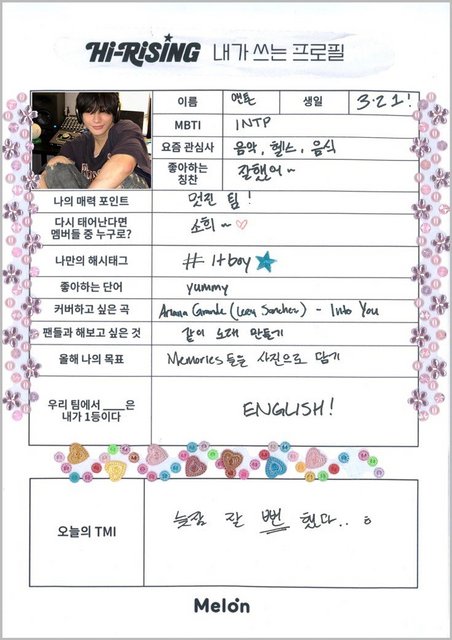 Hi-RiSiNG 내가 쓰는 프로필
이름 앤톤 생일 3.21!
MBTI INTP
요즘 관심사 음악, 헬스, 음식
좋아하는
칭찬 잘했어~
나의 매력 포인트 멋진 팀!
다시 태어난다면
멤버들 중 누구로? 소희~ ♡
나만의 해시태그 # It boy ★
좋아하는 단어 yummy
커버하고 싶은 곡 Ariana Grande (Leroy Sanchez) - Into You
팬들과 해보고 싶은 것 같이 노래 만들기
올해 나의 목표 Memories들을 사진으로 담기
우리 팀에서 ____은
내가 1등이다 ENGLISH!
오늘의 TMI 늦잠 잘 뻔 했다..
Melon